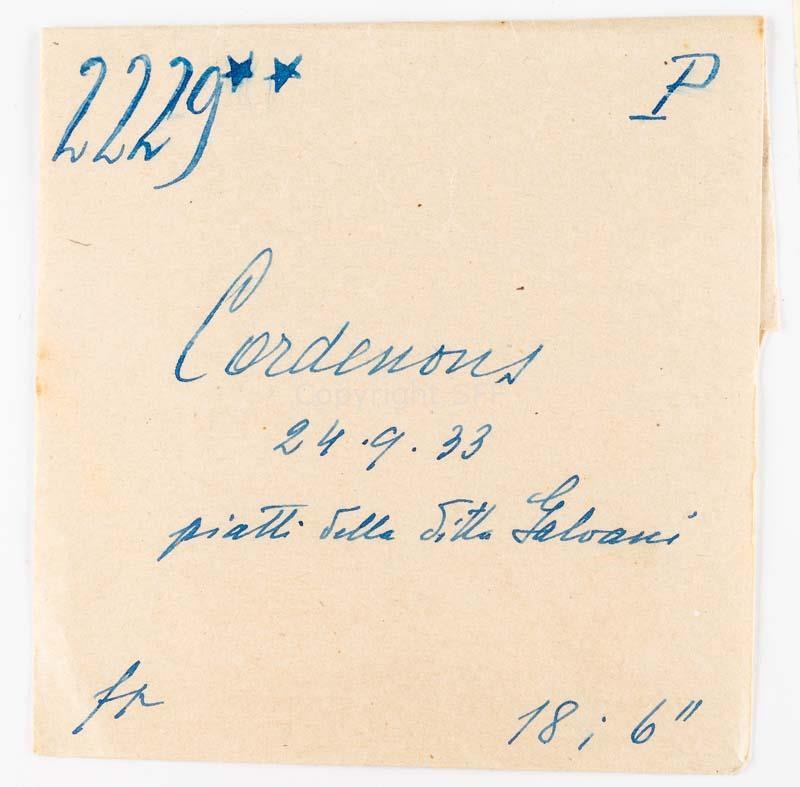 2229** P
Cordenons
Copyright SFF
24.9.33
piatti della ditta Galvani
fp
18; 6"